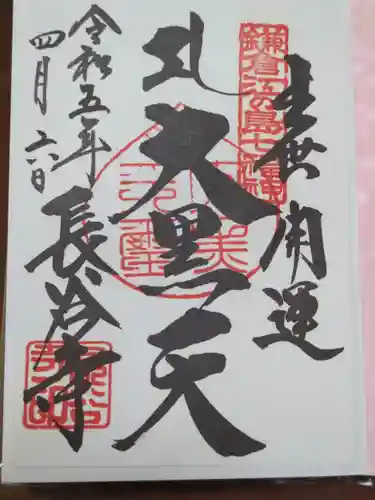 出世開運
鎌倉江の島七福神
大黒天
令和五年
四月六日
長谷寺